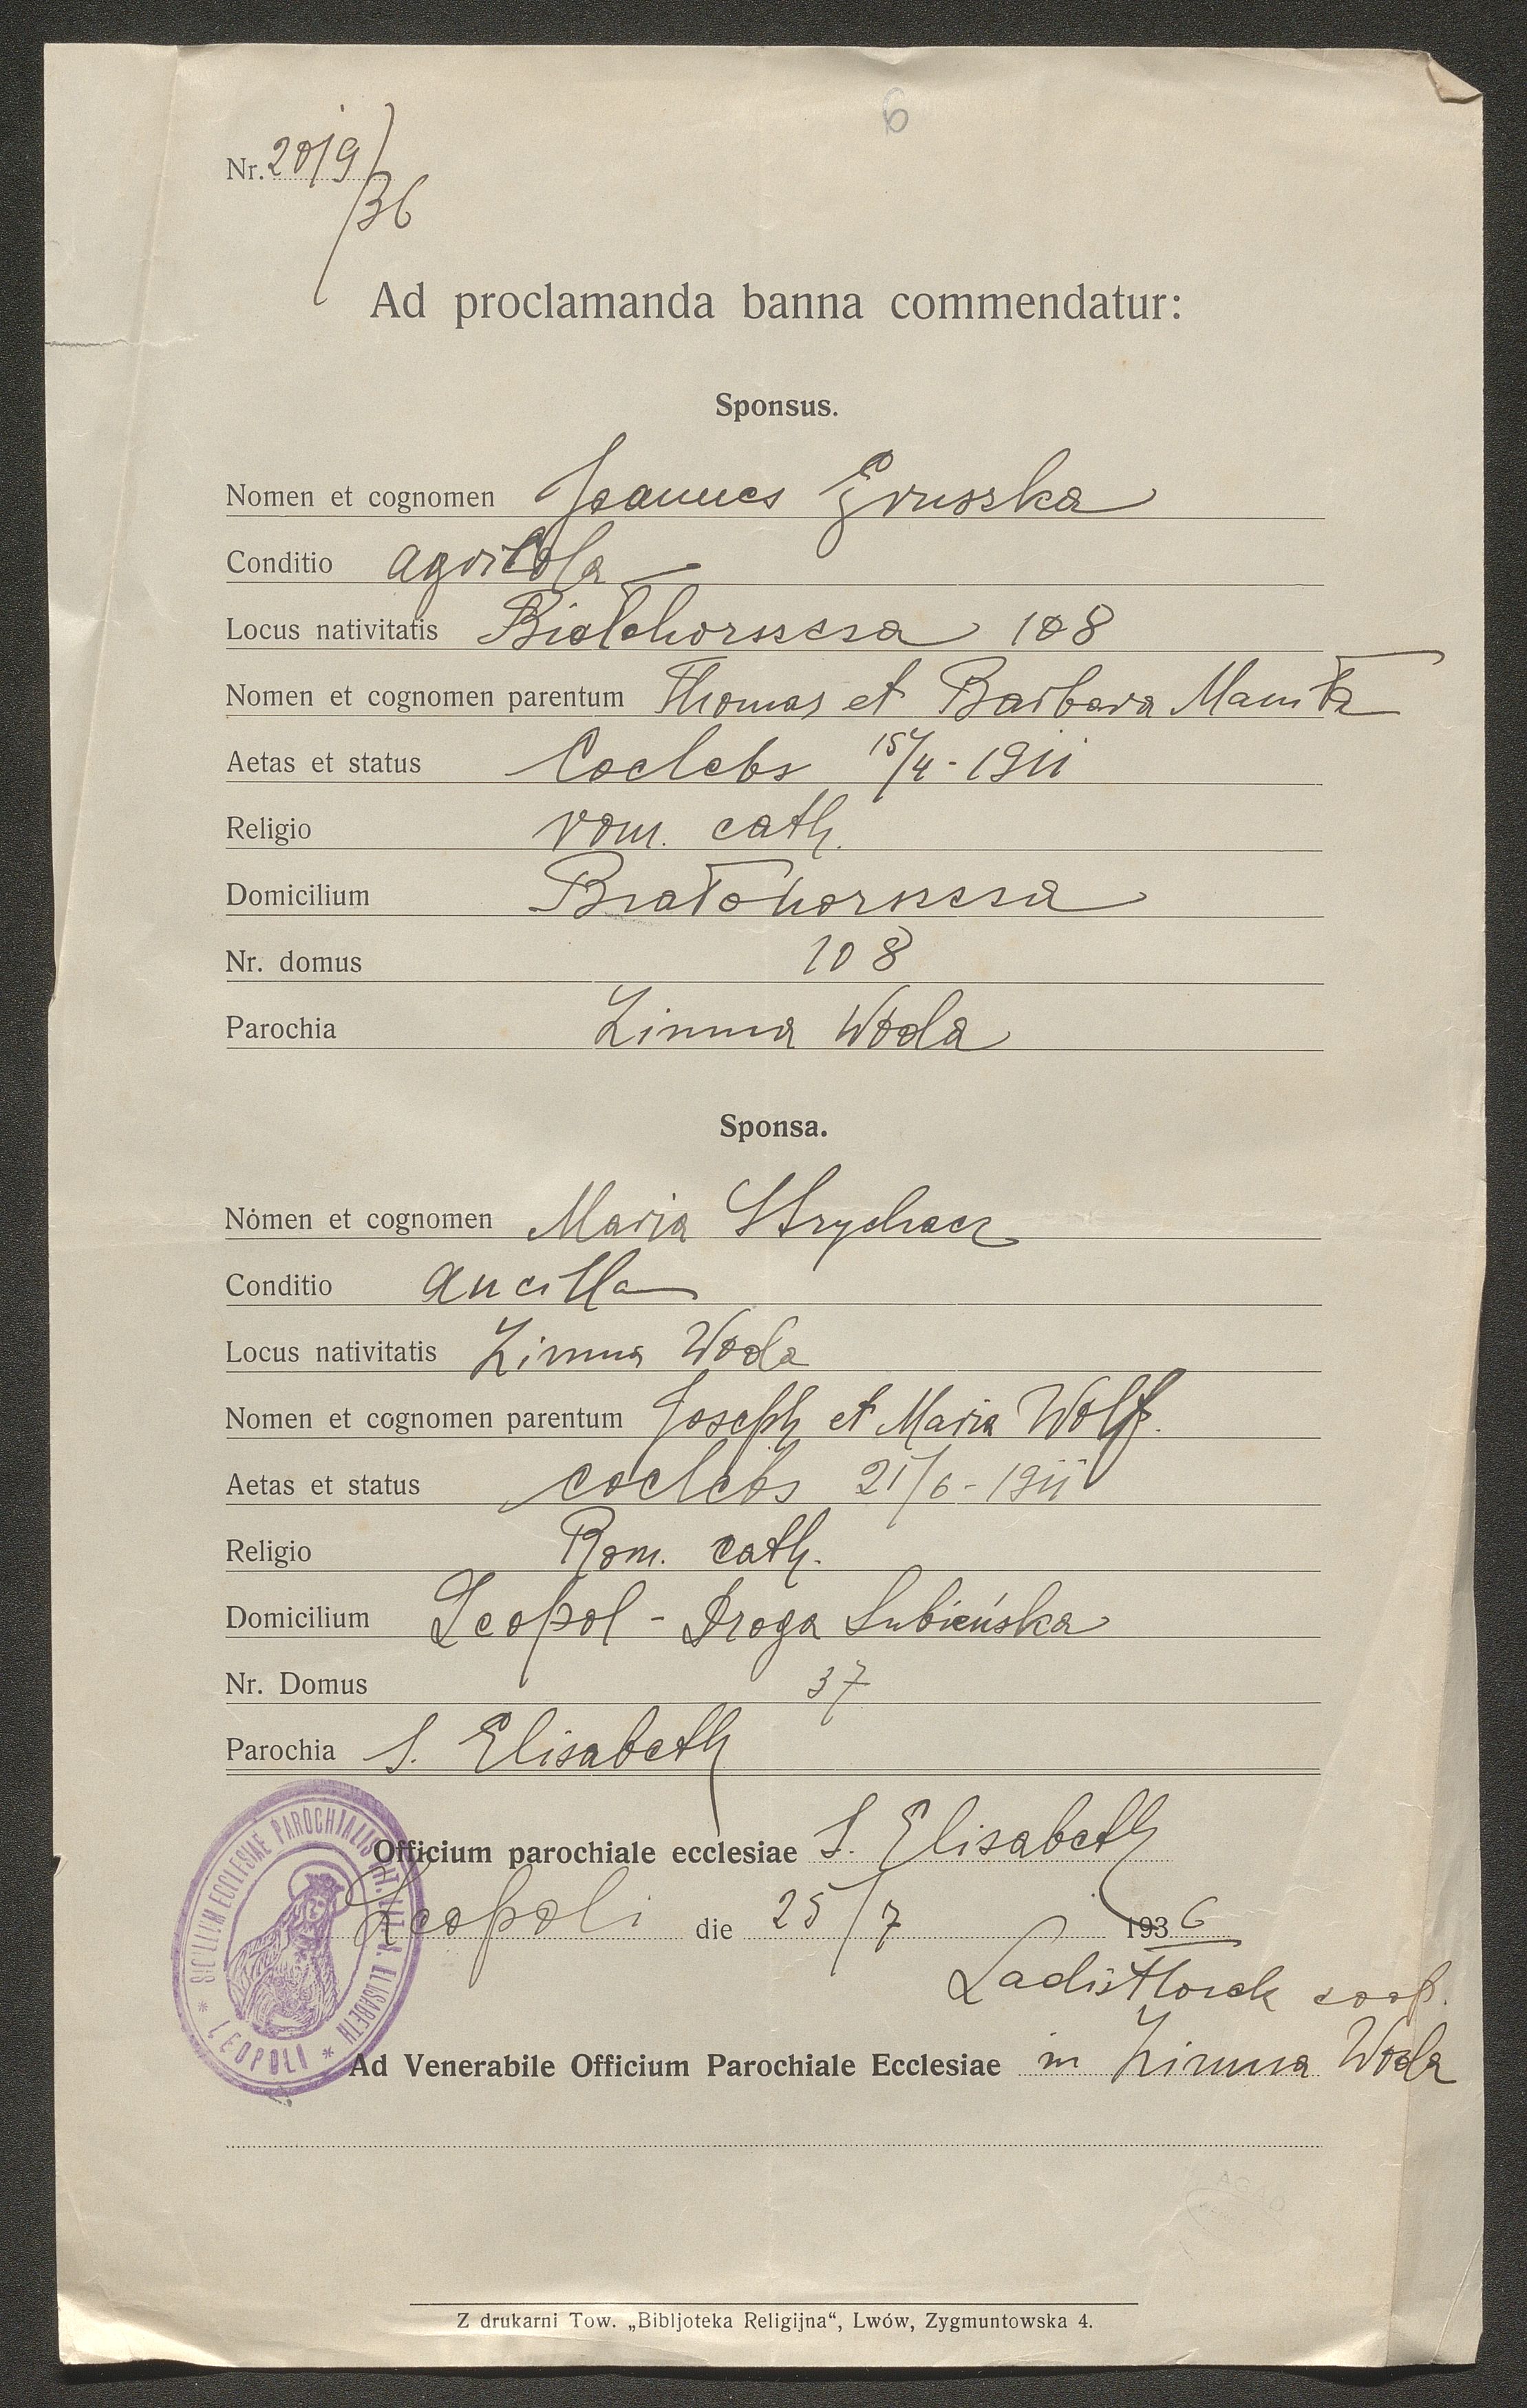 6
Nr. 2019/36
Ad proclamanda banna commendatur:
Sponsus.
Nomen et cognomen Joannes Gruszka
Conditio agricola
Locus nativitatis 108
Nomen et cognomen parentum Thomas et Barbara
Aetas et status Coelebs 15/4 - 1911
Religio rom. cath.
Domicilium Białohorszcza
Nr. domus 108
Parochia Zimna Woda
Sponsa.
Nomen et cognomen Maria Strychacz
Conditio ancilla
Locus nativitatis Zimna Woda
Nomen et cognomen parentum Joseph et Maria Wolf.
Aetas et status coelebs 21/6 - 1911
Religio Rom. cath.
Domicilium Leopol - Droga Lubieńska
Nr. Domus 37
Parochia S. Elisabeth
SIGILLUM ECCLESIAE PAROCHIALIS ELISABETH * LEOPOLI *
Officium parochiale ecclesiae S. Elisabeth
Leopoli die 25/7 1936
coop.
Ad Venerabile Officium Parochiale Ecclesiae in Zimna Woda
Z drukarni Tow. „Bibljoteka Religijna“, Lwów, Zygmuntowska 4.